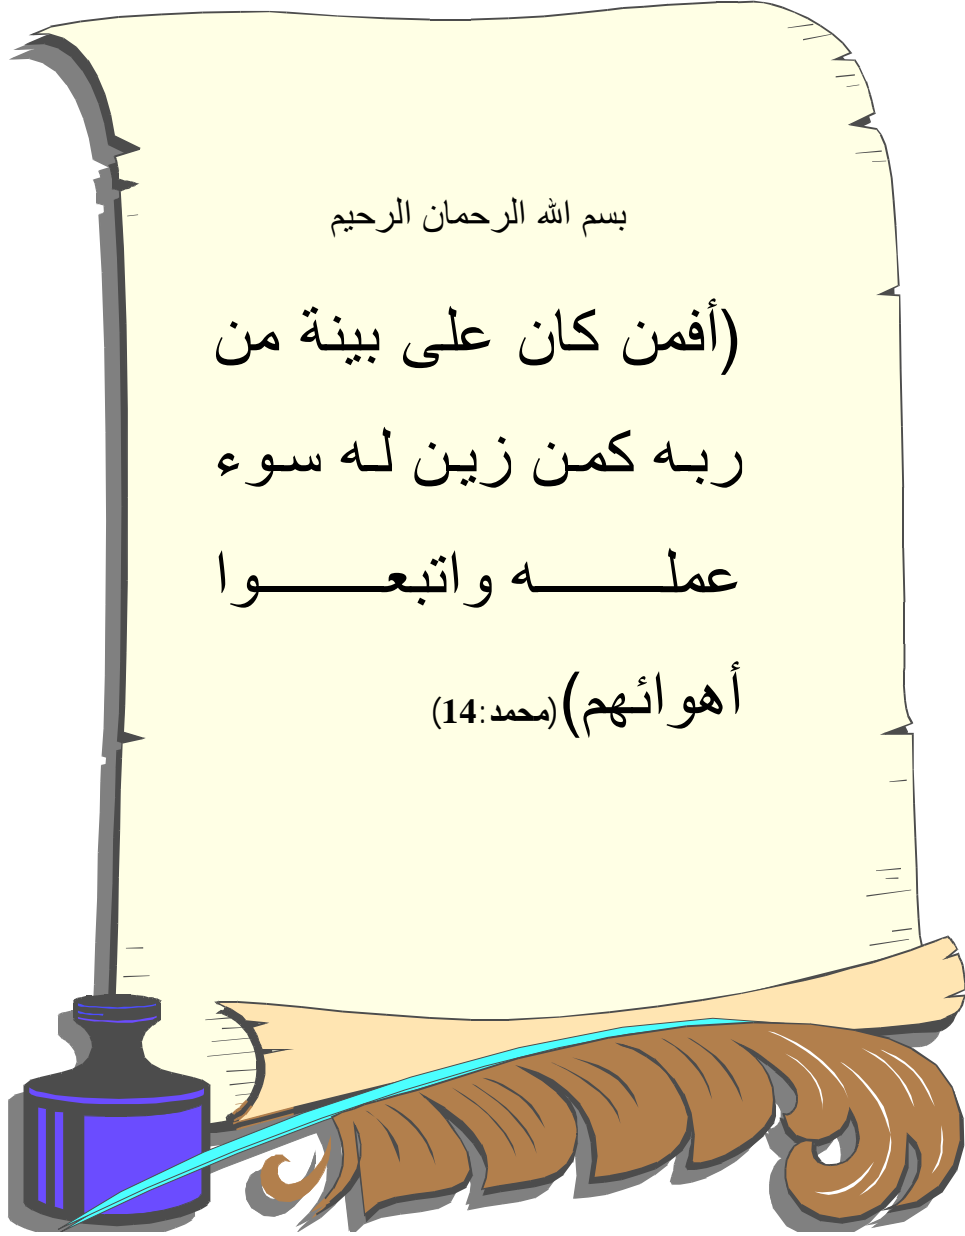 بسم الله الرحمان الرحيم
(أفمن كان على بينة من
ربه كمن زين له سوء
عمله واتبعوا
أهوائهم)(محمد:14)